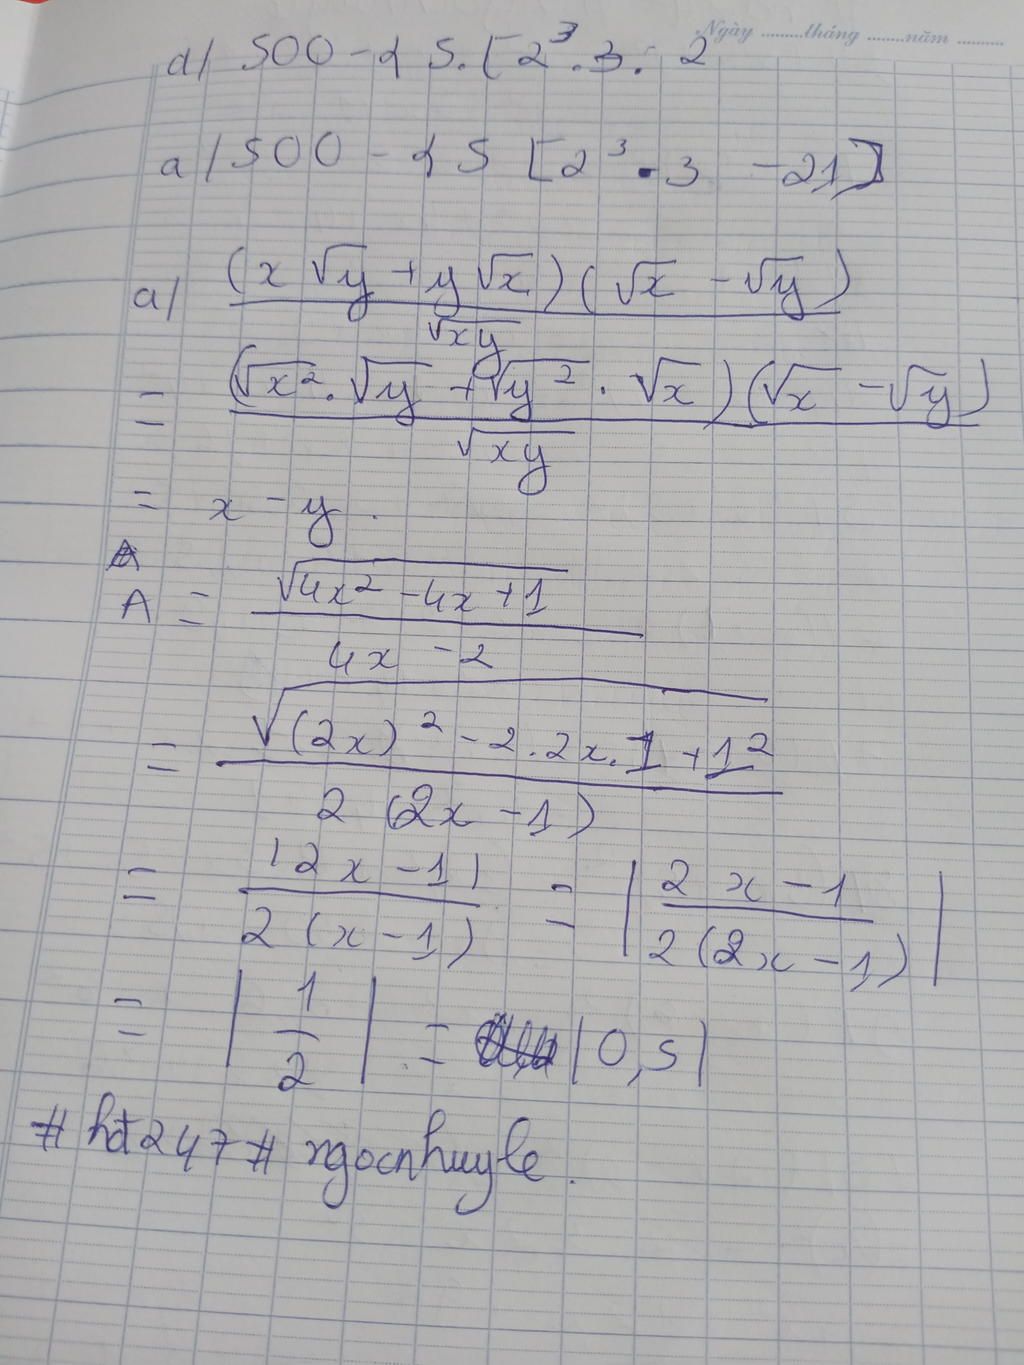 Ngày ......... tháng ........ năm ..........
d/ 500 - { 5. [ 2³ . 3 . 2
a/ 500 - { 5 [ 2³ . 3 - 21 ]
a/ (x√y + y√x)(√x - √y) / √xy
= (√x² . √y + √y² . √x)(√x - √y) / √xy
= x - y .
A = √(4x² - 4x + 1) / (4x - 2)
= √((2x)² - 2 . 2x . 1 + 1²) / 2(2x - 1)
= |2x - 1| / 2(x - 1) = | 2x - 1 / 2(2x - 1) |
= | 1/2 | = |0,5|
# hđt247 # ngocnhuyle .